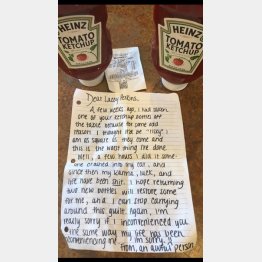 HEINZ
TOMATO
KETCHUP
HEINZ
TOMATO
KETCHUP
Dear Lacey Perkins,
A few weeks ago, I had stolen
one of your ketchup bottles off
the table because for some odd
reason I thought I'd be "risky". I
am as square as they come and
this is the worst thing I've done.
Well, a few hours I did it some-
one crashed into my car, and
since then my karma, luck, and
life have been shit. I hope returning
two new bottles will restore some
for me, and I can stop carrying
around this guilt. Again, I'm
really sorry if I inconvenienced you
the same way my life has been
inconveniencing me. I'm sorry.
from, an awful person